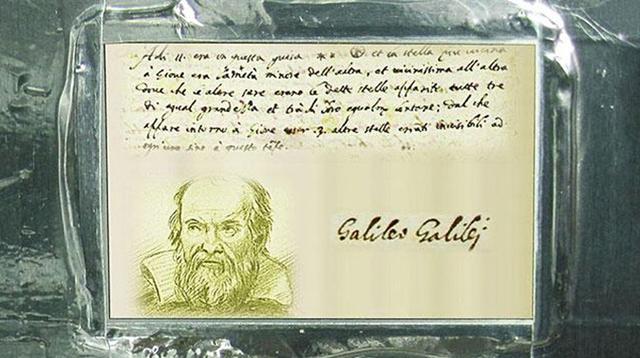 Adi 11 era in questa guisa ** et la stella più vicina
à Giove era la metà minore dell'altra, et vicinissima all'altra
dove che le altre sere erano le dette stelle apparite tutte tre
di equal grandezza et trà di loro equalm. lontane; dal che
appare intorno à Giove esser 3. altre stelle erranti invisibili ad
ogn'uno sino à questo tempo.
Galileo Galilej